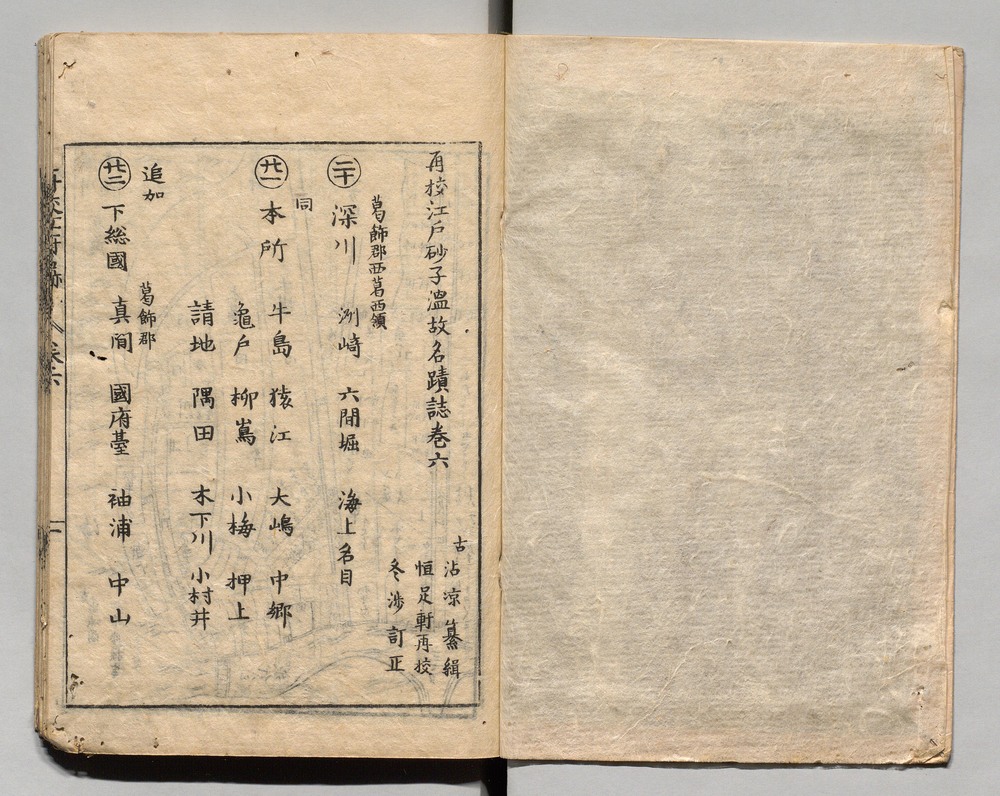 再校江戸砂子溫故名蹟誌巻六
古
沾凉 纂緝
恒足軒再校
冬渉 訂正
葛飾郡西葛西領
二十 深川 洲崎 六間堀 海上名目
同
廿一 本所 牛島 猿江 大嶋 中郷
亀戸 柳嶌 小梅 押上
請地 隅田 木下川 小村井
追加
葛飾郡
廿二 下総國 真間 國府臺 袖浦 中山